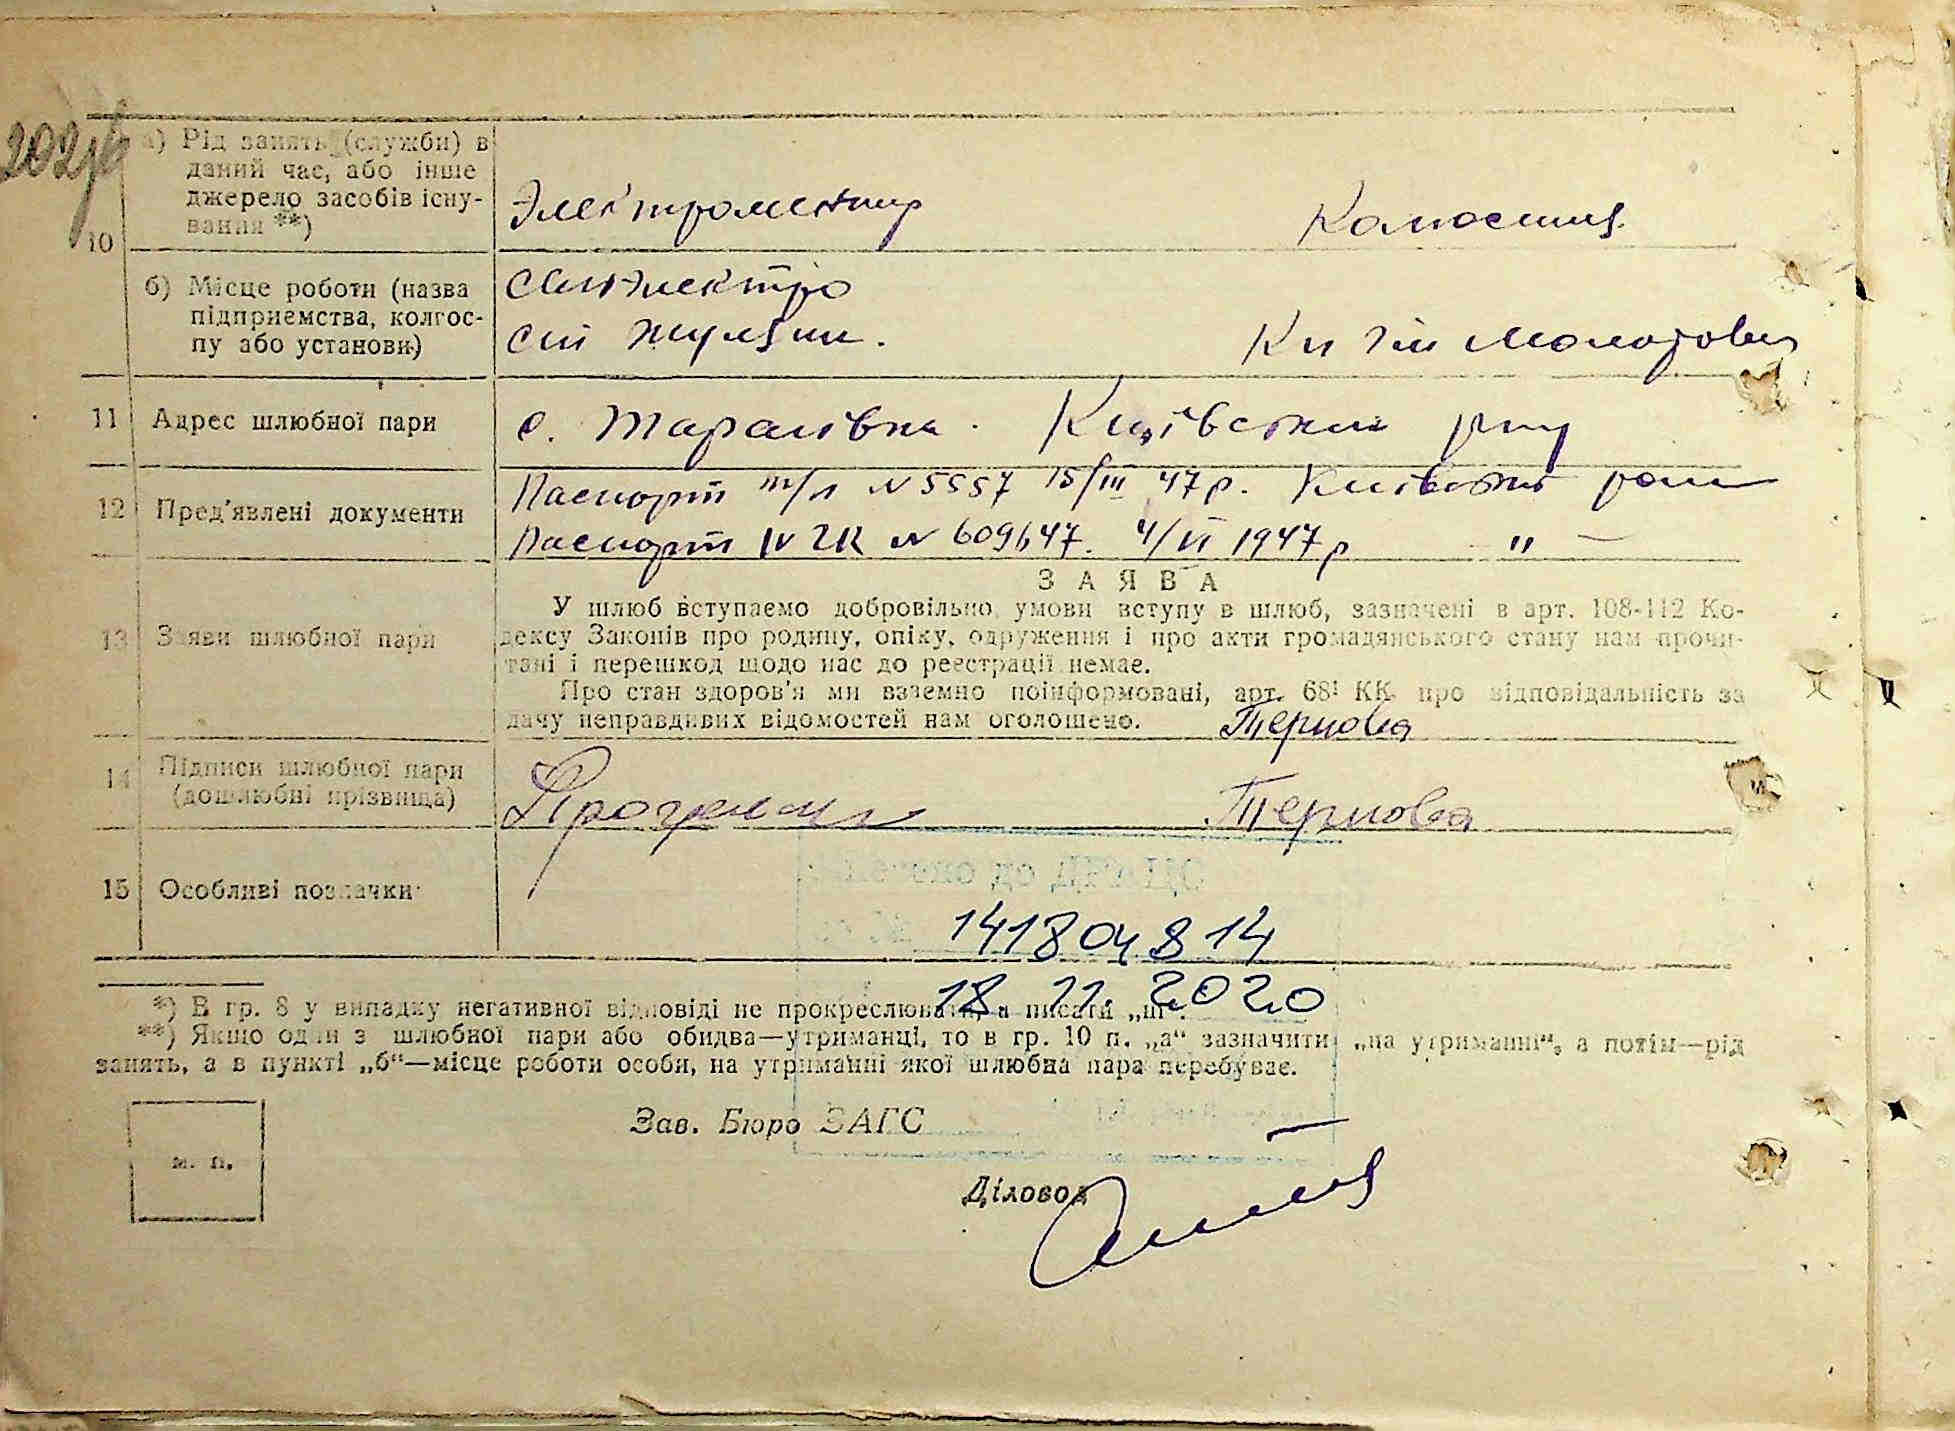 202
10 а) Рід занять (служби) в даний час, або інше джерело засобів існування **)
Электромонтир
б) Місце роботи (назва підприємства, колгоспу або установи)
11 Адрес шлюбної пари
с. Тарасівка. Київський р-ну
12 Пред'явлені документи
Паспорт № 5557 15/III 47 р. Київський
Паспорт IV № 609647. 4/VI 1947 р — " —
13 Заяви шлюбної пари
ЗАЯВА
У шлюб вступаємо добровільно, умови вступу в шлюб, зазначені в арт. 108-112 Ко-
дексу Законів про родину, опіку, одруження і про акти громадянського стану нам прочи-
тані і перешкод щодо нас до реєстрації немає.
Про стан здоров'я ми взаємно поінформовані, арт. 68¹ КК про відповідальність за
дачу неправдивих відомостей нам оголошено. Тернова
14 Підписи шлюбної пари (дошлюбні прізвища)
Тернова
15 Особливі позначки
141804814
18.11.2020
*) В гр. 8 у випадку негативної відповіді не прокреслювати, а писати „ні“.
**) Якщо один з шлюбної пари або обидва—утриманці, то в гр. 10 п. „а“ зазначити „на утриманні“, а потім—рід
занять, а в пункті „б“—місце роботи особи, на утриманні якої шлюбна пара перебуває.
Зав. Бюро ЗАГС
м. п.
Діловод